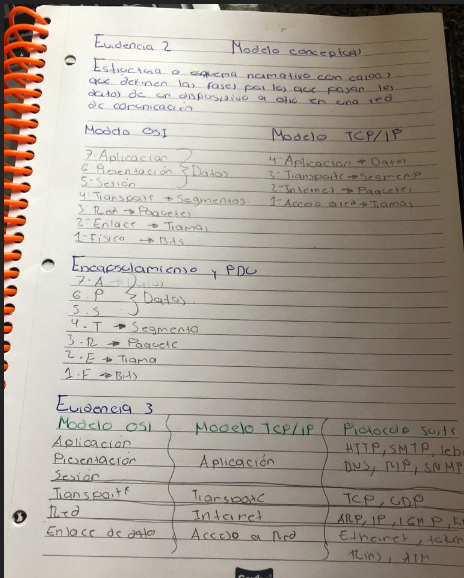 Evidencia 2 Modelo conceptual
Estructura o esquema normativo con capas
que definen las fases por las que pasan los
datos de un dispositivo a otro en una red
de comunicación
Modelo OSI Modelo TCP/IP
7. Aplicación
6 Presentación } Datos
5. Sesión
4. Transporte → Segmentos
3. Red → Paquetes
2. Enlace → Tramas
1. Físico → Bits
4. Aplicación → Datos
3. Transporte → Segmento
2. Internet → Paquetes
1. Acceso a red → Tramas
Encapsulamiento y PDU
7. A
6. P } Datos
5. S
4. T → Segmento
3. R → Paquete
2. E → Trama
1. F → Bits
Evidencia 3
Modelo OSI Modelo TCP/IP Protocolo Suite
Aplicación HTTP, SMTP,
Presentación Aplicación DNS, RIP, SNMP
Sesión
Transporte Transporte TCP, UDP
Red Internet ARP, IP, IGMP,
Enlace de dato Acceso a Red Ethernet, token
Ring, ATM